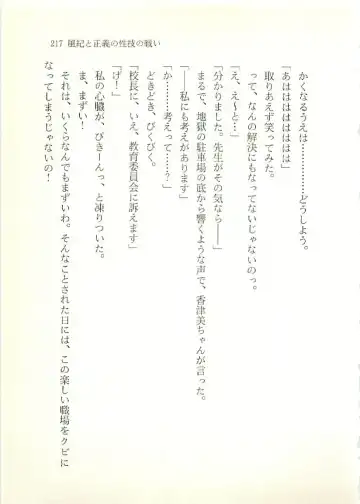 217 風紀と正義の性技の戦い
かくなるうえは…………どうしよう。
「あはははははははは」
取りあえず笑ってみた。
って、なんの解決にもなってないじゃないのっ。
「え、え〜と…」
「分かりました。先生がその気なら――」
まるで、地獄の駐車場の底から響くような声で、香津美ちゃんが言った。
「――私にも考えがあります」
「か………考えって……?」
どきどき、びくびく。
「校長に、いえ、教育委員会に訴えます」
「げ！」
私の心臓が、びきーんっ、と凍りついた。
それは、いくらなんでもまずいわ。そんなことされた日には、この楽しい職場をクビに
なってしまうじゃないの！